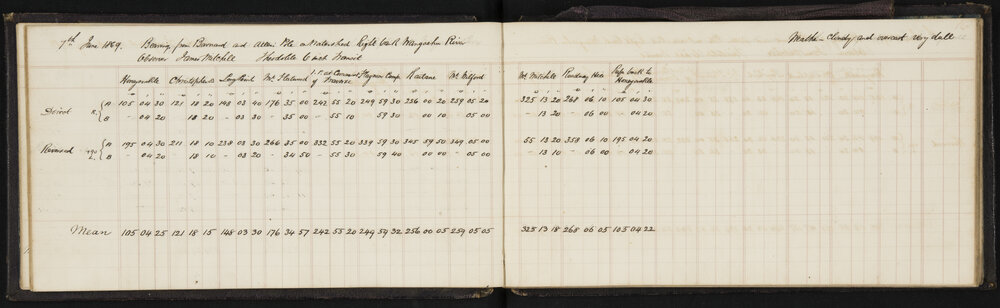 7th June 1869. Bearings from Barnard and Allen Pile on Watershed Right bank Mangrahn River
Weather - Cloudy and overcast very dull
Observer James Mitchell Theodolite 6 inch Transit
Honeysuckle Christopher's Long Point Mt. Stalward Haymes Camp Mt. Milford Mt. Mitchell Refer back to Honeysuckle
Direct R. A 105 04 30 121 18 20 148 03 40 176 35 00 242 55 20 249 59 30 256 00 20 259 05 20 325 13 20 268 06 10 105 04 30
B - 04 20 18 20 - 03 30 - 35 00 - 55 10 59 30 00 10 - 05 00 - 13 20 - 06 00 04 20
Reversed +90 L. A 195 04 30 211 18 10 238 03 30 266 35 00 332 55 20 339 59 30 345 59 50 349 05 00 55 13 20 358 06 10 195 04 20
B - 04 20 18 10 - 03 20 - 34 50 - 55 30 59 40 00 00 - 05 00 - 13 10 - 06 00 - 04 20
Mean 105 04 25 121 18 15 148 03 30 176 34 57 242 55 20 249 59 32 256 00 05 259 05 05 325 13 18 268 06 05 105 04 22